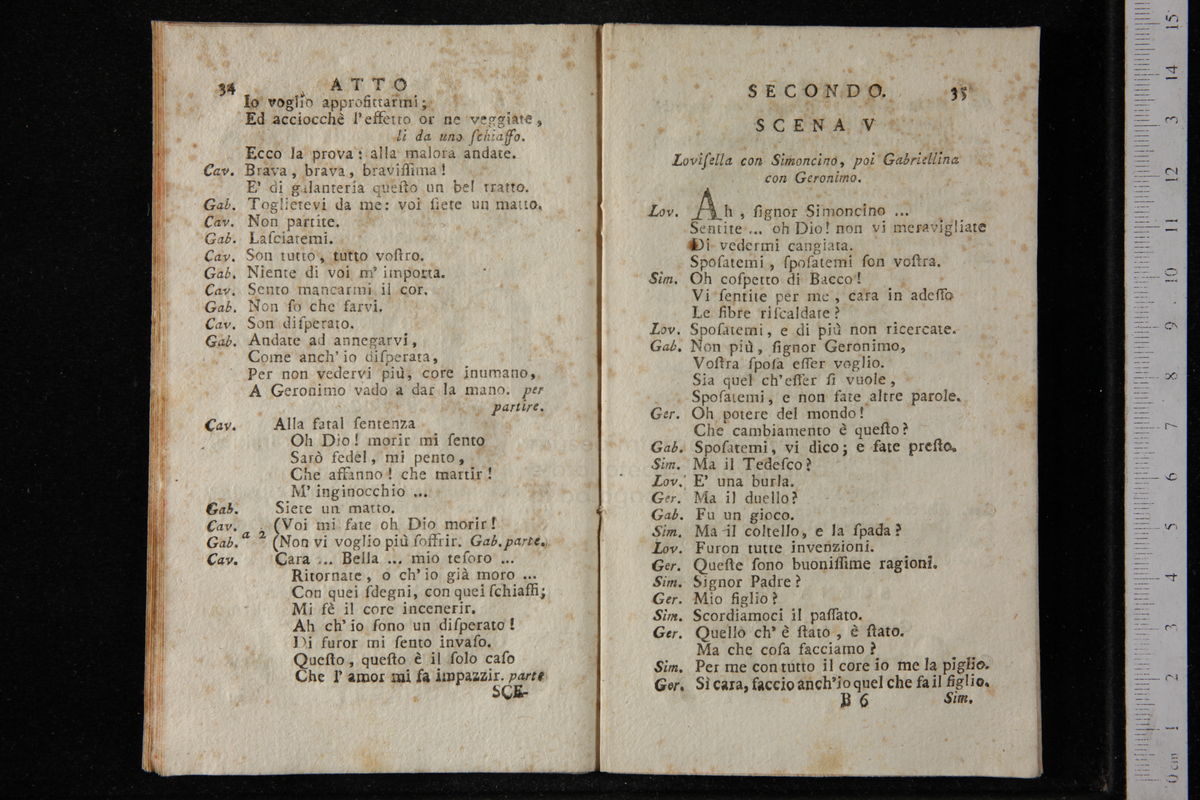 34 ATTO
Io voglio approfittarmi;
Ed acciocchè l'effetto or ne veggiate,
li da uno ſchiaffo.
Ecco la prova: alla malora andate.
Cav. Brava, brava, braviſſima!
E' di galanteria queſto un bel tratto.
Gab. Toglietevi da me: voi ſiete un matto.
Cav. Non partite.
Gab. Laſciatemi.
Cav. Son tutto, tutto voſtro.
Gab. Niente di voi m' importa.
Cav. Sento mancarmi il cor.
Gab. Non ſo che farvi.
Cav. Son diſperato.
Gab. Andate ad annegarvi,
Come anch' io diſperata,
Per non vedervi più, core inumano,
A Geronimo vado a dar la mano. per
partire.
Cav. Alla fatal ſentenza
Oh Dio! morir mi ſento
Sarò fedel, mi pento,
Che affanno! che martir!
M' inginocchio ...
Gab. Siete un matto.
Cav. (Voi mi fate oh Dio morir!
Gab. a 2 (Non vi voglio più ſoffrir. Gab. parte.
Cav. Cara ... Bella ... mio teſoro ...
Ritornate, o ch' io già moro ...
Con quei ſdegni, con quei ſchiaffi;
Mi fè il core incenerir.
Ah ch' io ſono un diſperato!
Di furor mi ſento invaſo.
Queſto, queſto è il ſolo caſo
Che l' amor mi fa impazzir. parte
SCE-
SECONDO. 35
SCENA V
Loviſella con Simoncino, poi Gabriellina
con Geronimo.
Lov. Ah, ſignor Simoncino ...
Sentite ... oh Dio! non vi meravigliate
Di vedermi cangiata.
Spoſatemi, ſpoſatemi ſon voſtra.
Sim. Oh coſpetto di Bacco!
Vi ſentite per me, cara in adeſſo
Le fibre riſcaldate?
Lov. Spoſatemi, e di più non ricercate.
Gab. Non più, ſignor Geronimo,
Voſtra ſpoſa eſſer voglio.
Sia quel ch'eſſer ſi vuole,
Spoſatemi, e non fate altre parole.
Ger. Oh potere del mondo!
Che cambiamento è queſto?
Gab. Spoſatemi, vi dico; e fate preſto.
Sim. Ma il Tedeſco?
Lov. E' una burla.
Ger. Ma il duello?
Gab. Fu un gioco.
Sim. Ma il coltello, e la ſpada?
Lov. Furon tutte invenzioni.
Ger. Queſte ſono buoniſſime ragioni.
Sim. Signor Padre?
Ger. Mio figlio?
Sim. Scordiamoci il paſſato.
Ger. Quello ch' è ſtato, è ſtato.
Ma che coſa facciamo?
Sim. Per me con tutto il core io me la piglio.
Ger. Sì cara, faccio anch'io quel che fa il figlio.
B 6 Sim.
0 cm 1 2 3 4 5 6 7 8 9 10 11 12 13 14 15